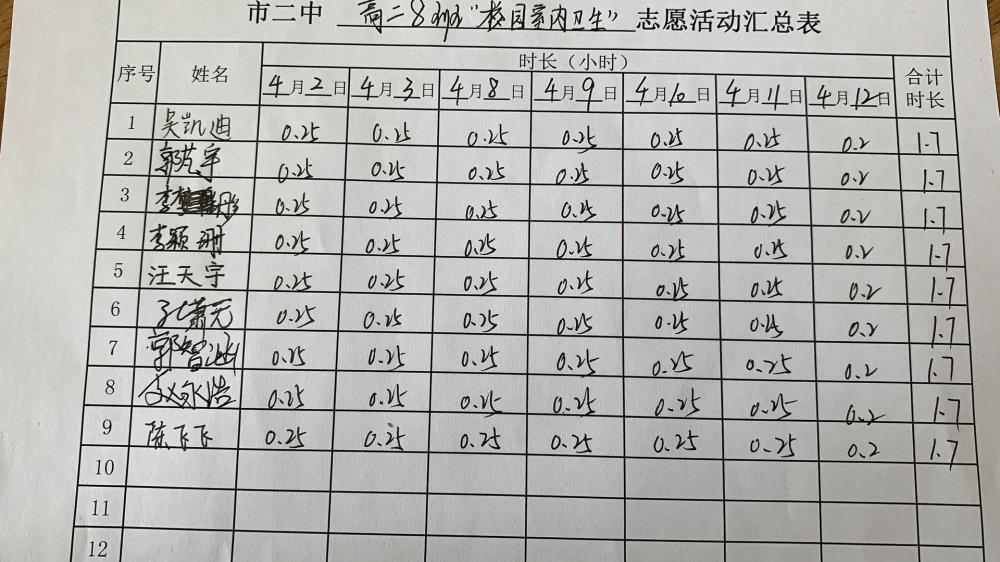 市二中 高二8 "校园室内卫生" 志愿活动汇总表
序号 姓名 时长（小时） 合计时长
4月2日 4月3日 4月8日 4月9日 4月10日 4月11日 4月12日
1 吴凯迪 0.25 0.25 0.25 0.25 0.25 0.25 0.2 1.7
2 郭艺宇 0.25 0.25 0.25 0.25 0.25 0.25 0.2 1.7
3 李 彤 0.25 0.25 0.25 0.25 0.25 0.25 0.2 1.7
4 李颖珊 0.25 0.25 0.25 0.25 0.25 0.25 0.2 1.7
5 汪天宇 0.25 0.25 0.25 0.25 0.25 0.25 0.2 1.7
6 孔萧无 0.25 0.25 0.25 0.25 0.25 0.25 0.2 1.7
7 郭智 0.25 0.25 0.25 0.25 0.25 0.25 0.2 1.7
8 浩 0.25 0.25 0.25 0.25 0.25 0.25 0.2 1.7
9 陈飞飞 0.25 0.25 0.25 0.25 0.25 0.25 0.2 1.7
10
11
12